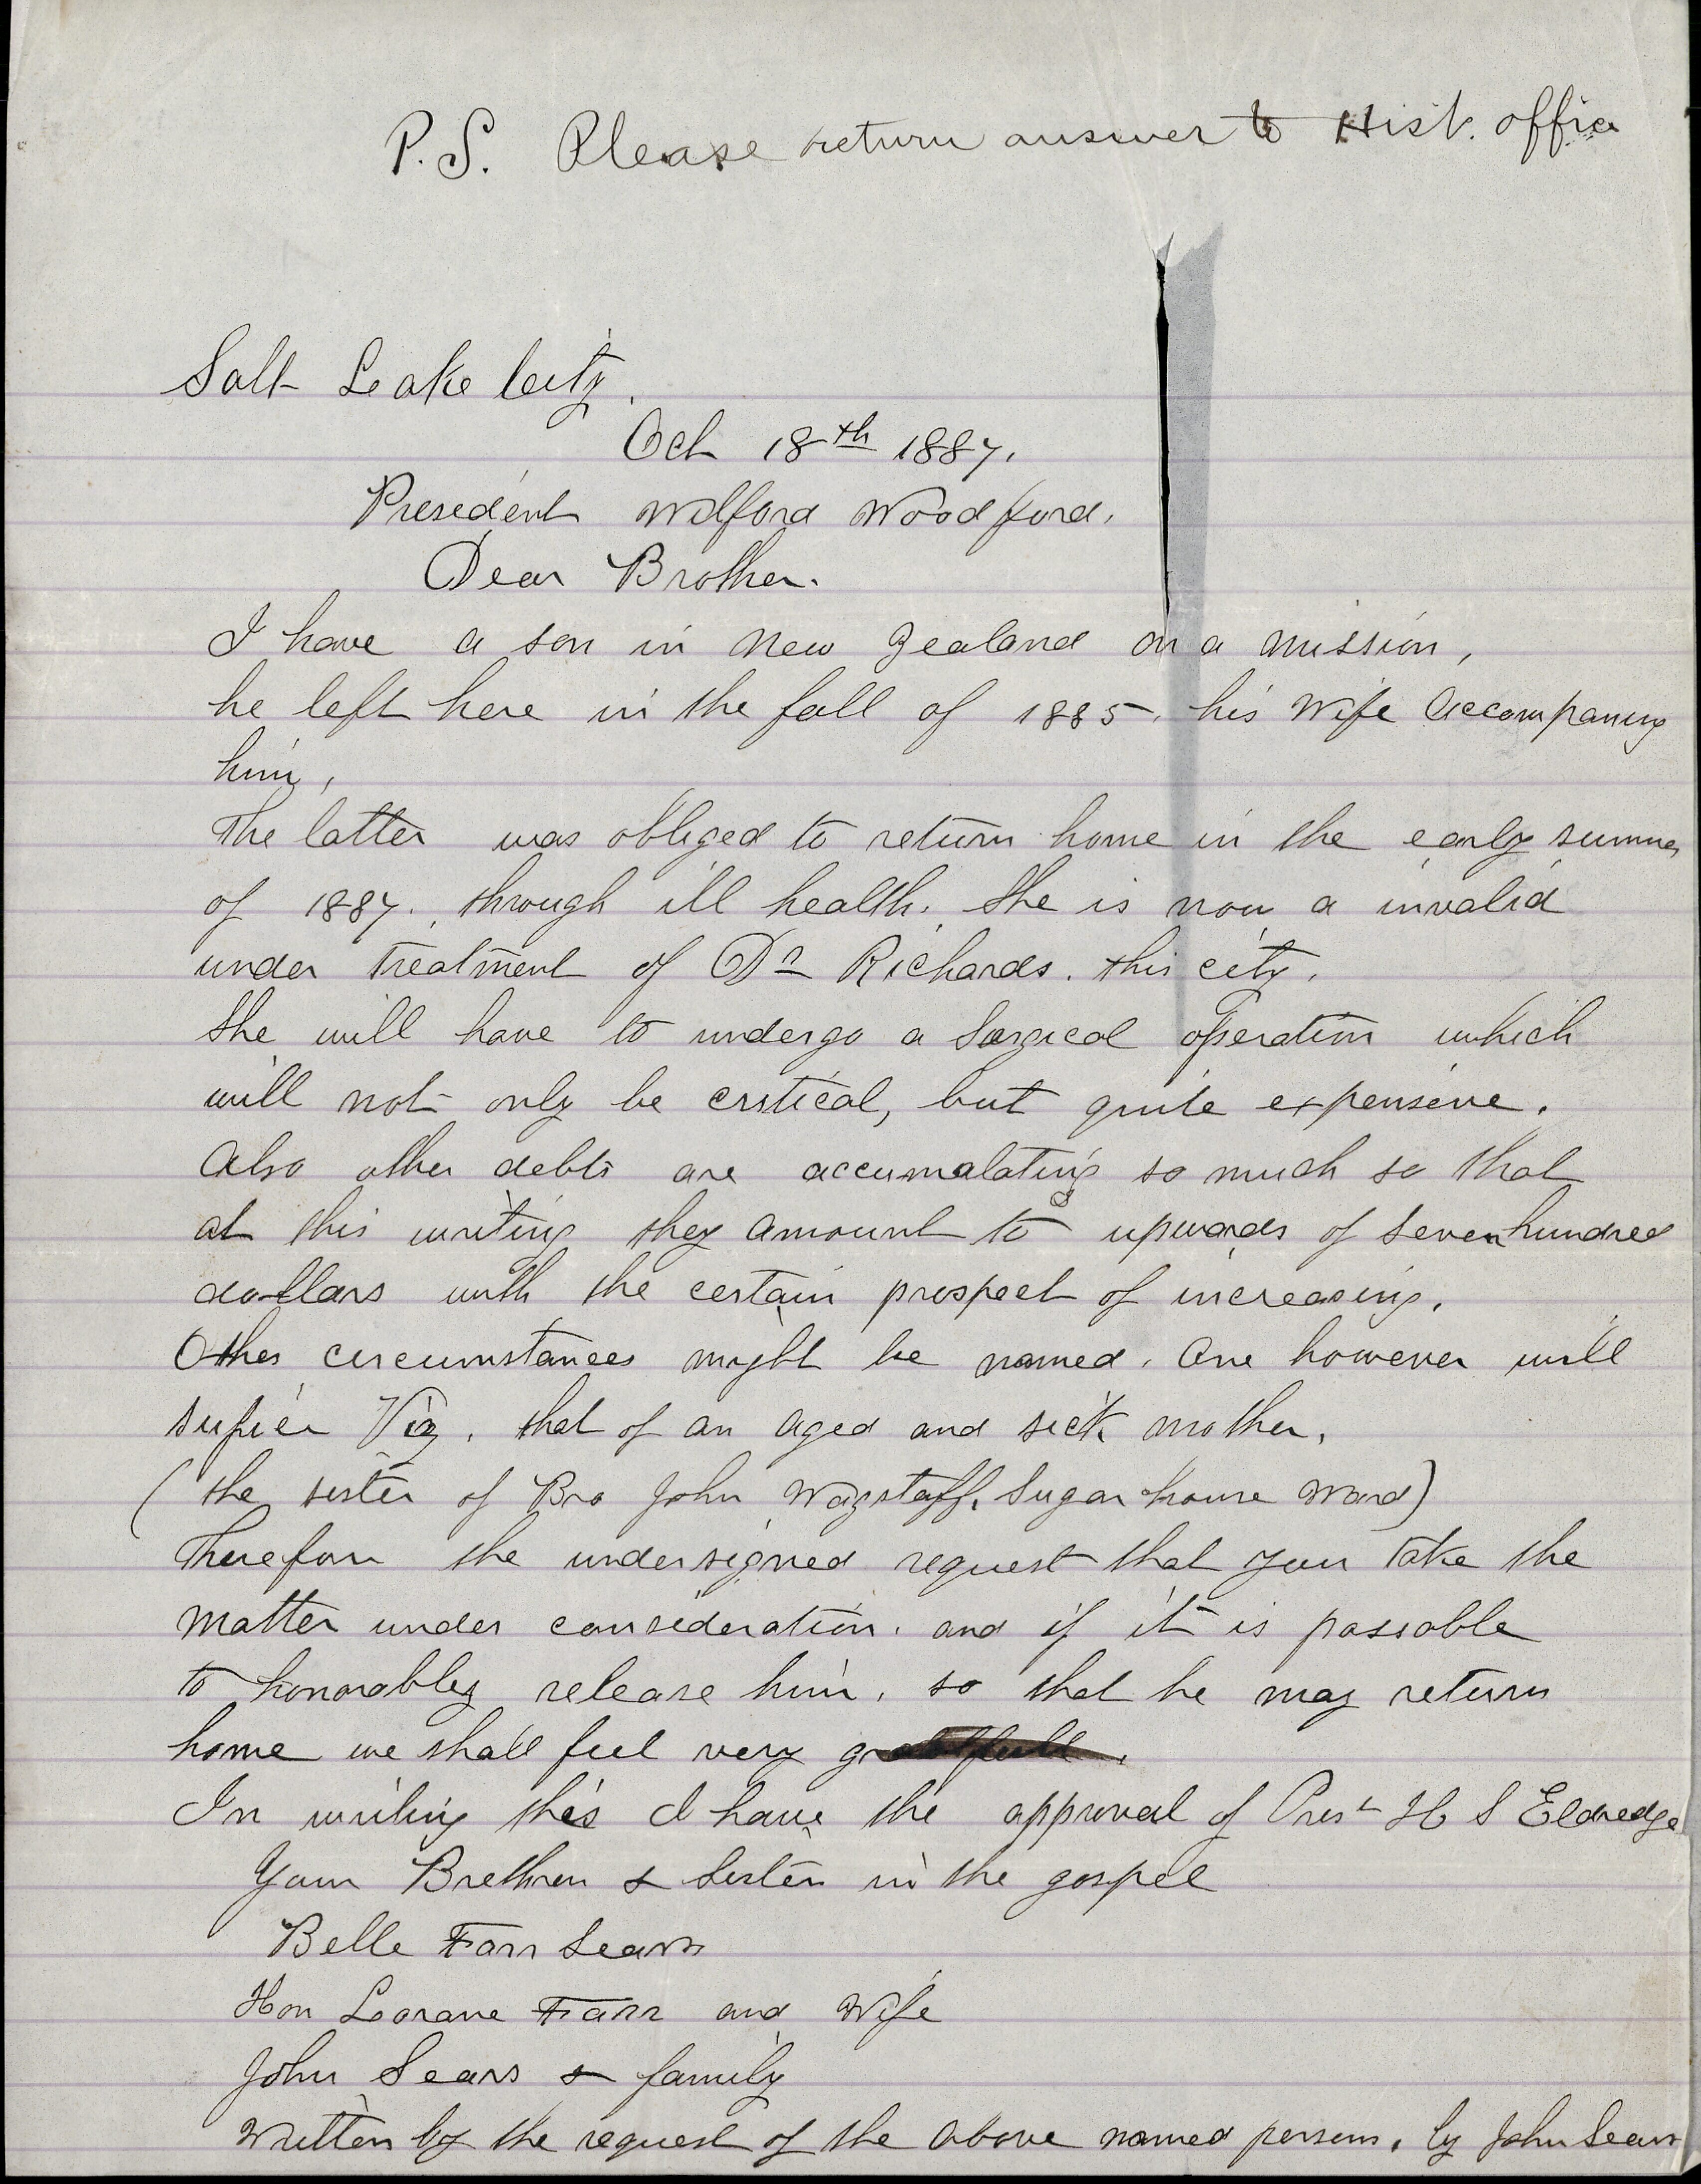 P.S. Please return answer to Hist. office
Salt Leake City.
Oct 18th 1887.
Presedent Wilford Woodfurd.
Dear Brother.
I have a son in New Zealand on a mission,
he left here in the fall of 1885. his wife accompaning
him,
The latter was obliged to return home in the early summer
of 1887. through ill health. She is now a invalid
under treatment of Dr Richards. this city.
She will have to undergo a Surgical operation which
will not only be critical, but quite expensive.
Also other debts are accumalating so much so that
at this writing they amount to upwards of seven hundred
dollars with the certain prospect of increasing.
Other circumstances might be named. One however will
Viz. that of an aged and sick mother.
(the sister of Bro John Wagstaff. Sugar house Ward)
Therefore the undersigned request that you take the
matter under consideration. and if it is possable
to honorabley release him. so that he may return
home we shall feel very gratfull.
In writing this I have the approval of Prest H S Eldredge
Your Brethren & Sister in the gospel
Belle Farr Sears
Hon Loorane Farr and Wife
John Sears & family
Written by the request of the above named persons. by John Sears